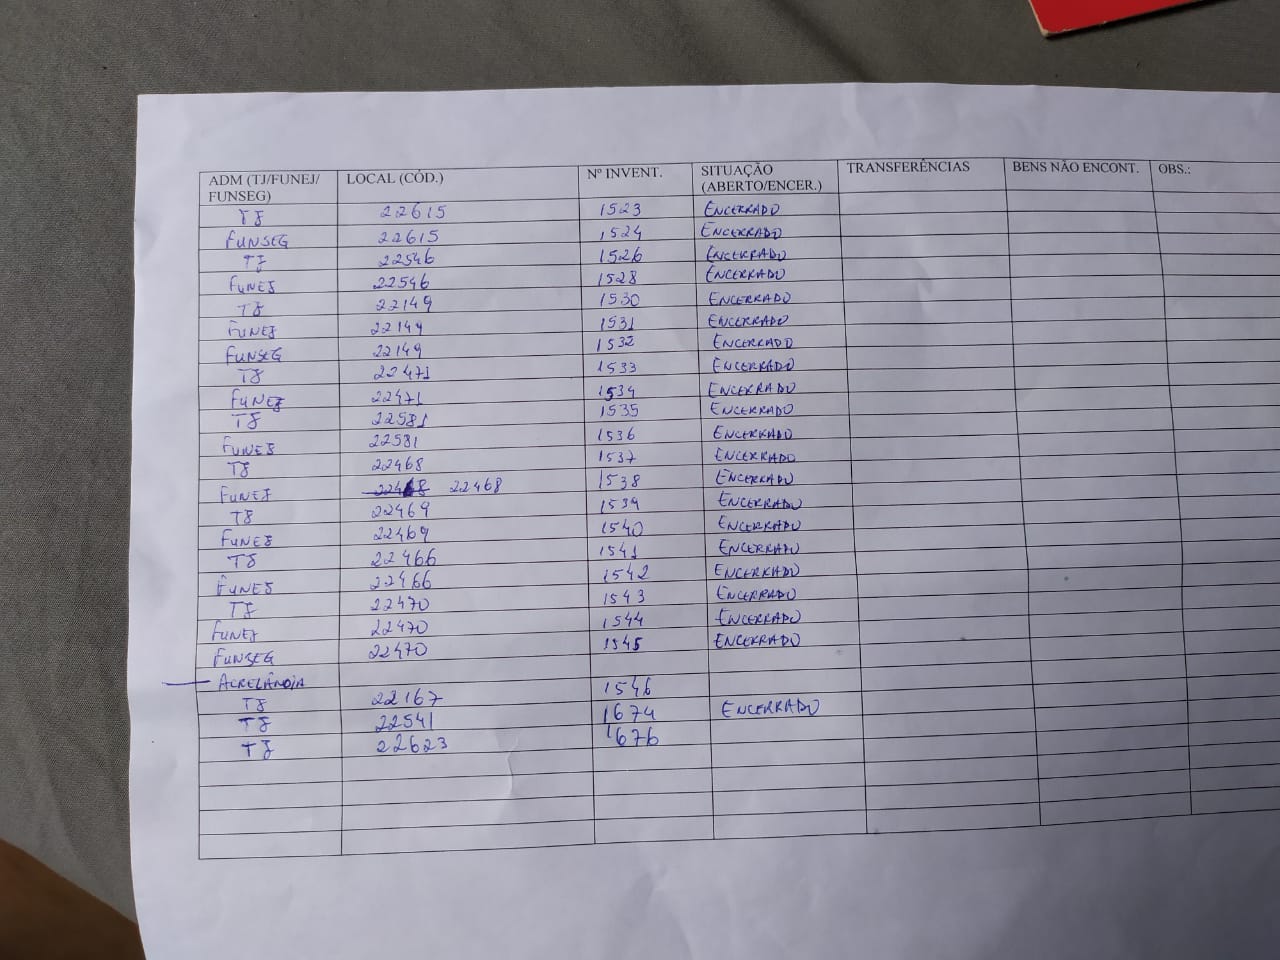 ADM (TJ/FUNEJ/FUNSEG) LOCAL (CÓD.) Nº INVENT. SITUAÇÃO (ABERTO/ENCER.) TRANSFERÊNCIAS BENS NÃO ENCONT. OBS.:
TJ 22615 1523 ENCERRADO
FUNSEG 22615 1524 ENCERRADO
TJ 22546 1526 ENCERRADO
FUNEJ 22546 1528 ENCERRADO
TJ 22149 1530 ENCERRADO
FUNEJ 22149 1531 ENCERRADO
FUNSEG 22149 1532 ENCERRADO
TJ 22471 1533 ENCERRADO
FUNEJ 22471 1534 ENCERRADO
TJ 22581 1535 ENCERRADO
FUNEJ 22581 1536 ENCERRADO
TJ 22468 1537 ENCERRADO
FUNEJ 22468 22468 1538 ENCERRADO
TJ 22469 1539 ENCERRADO
FUNEJ 22469 1540 ENCERRADO
TJ 22466 1541 ENCERRADO
FUNEJ 22466 1542 ENCERRADO
TJ 22470 1543 ENCERRADO
FUNEJ 22470 1544 ENCERRADO
FUNSEG 22470 1545 ENCERRADO
ACRELÂNDIA
TJ 22167 1546
TJ 22541 1674 ENCERRADO
TJ 22623 1676